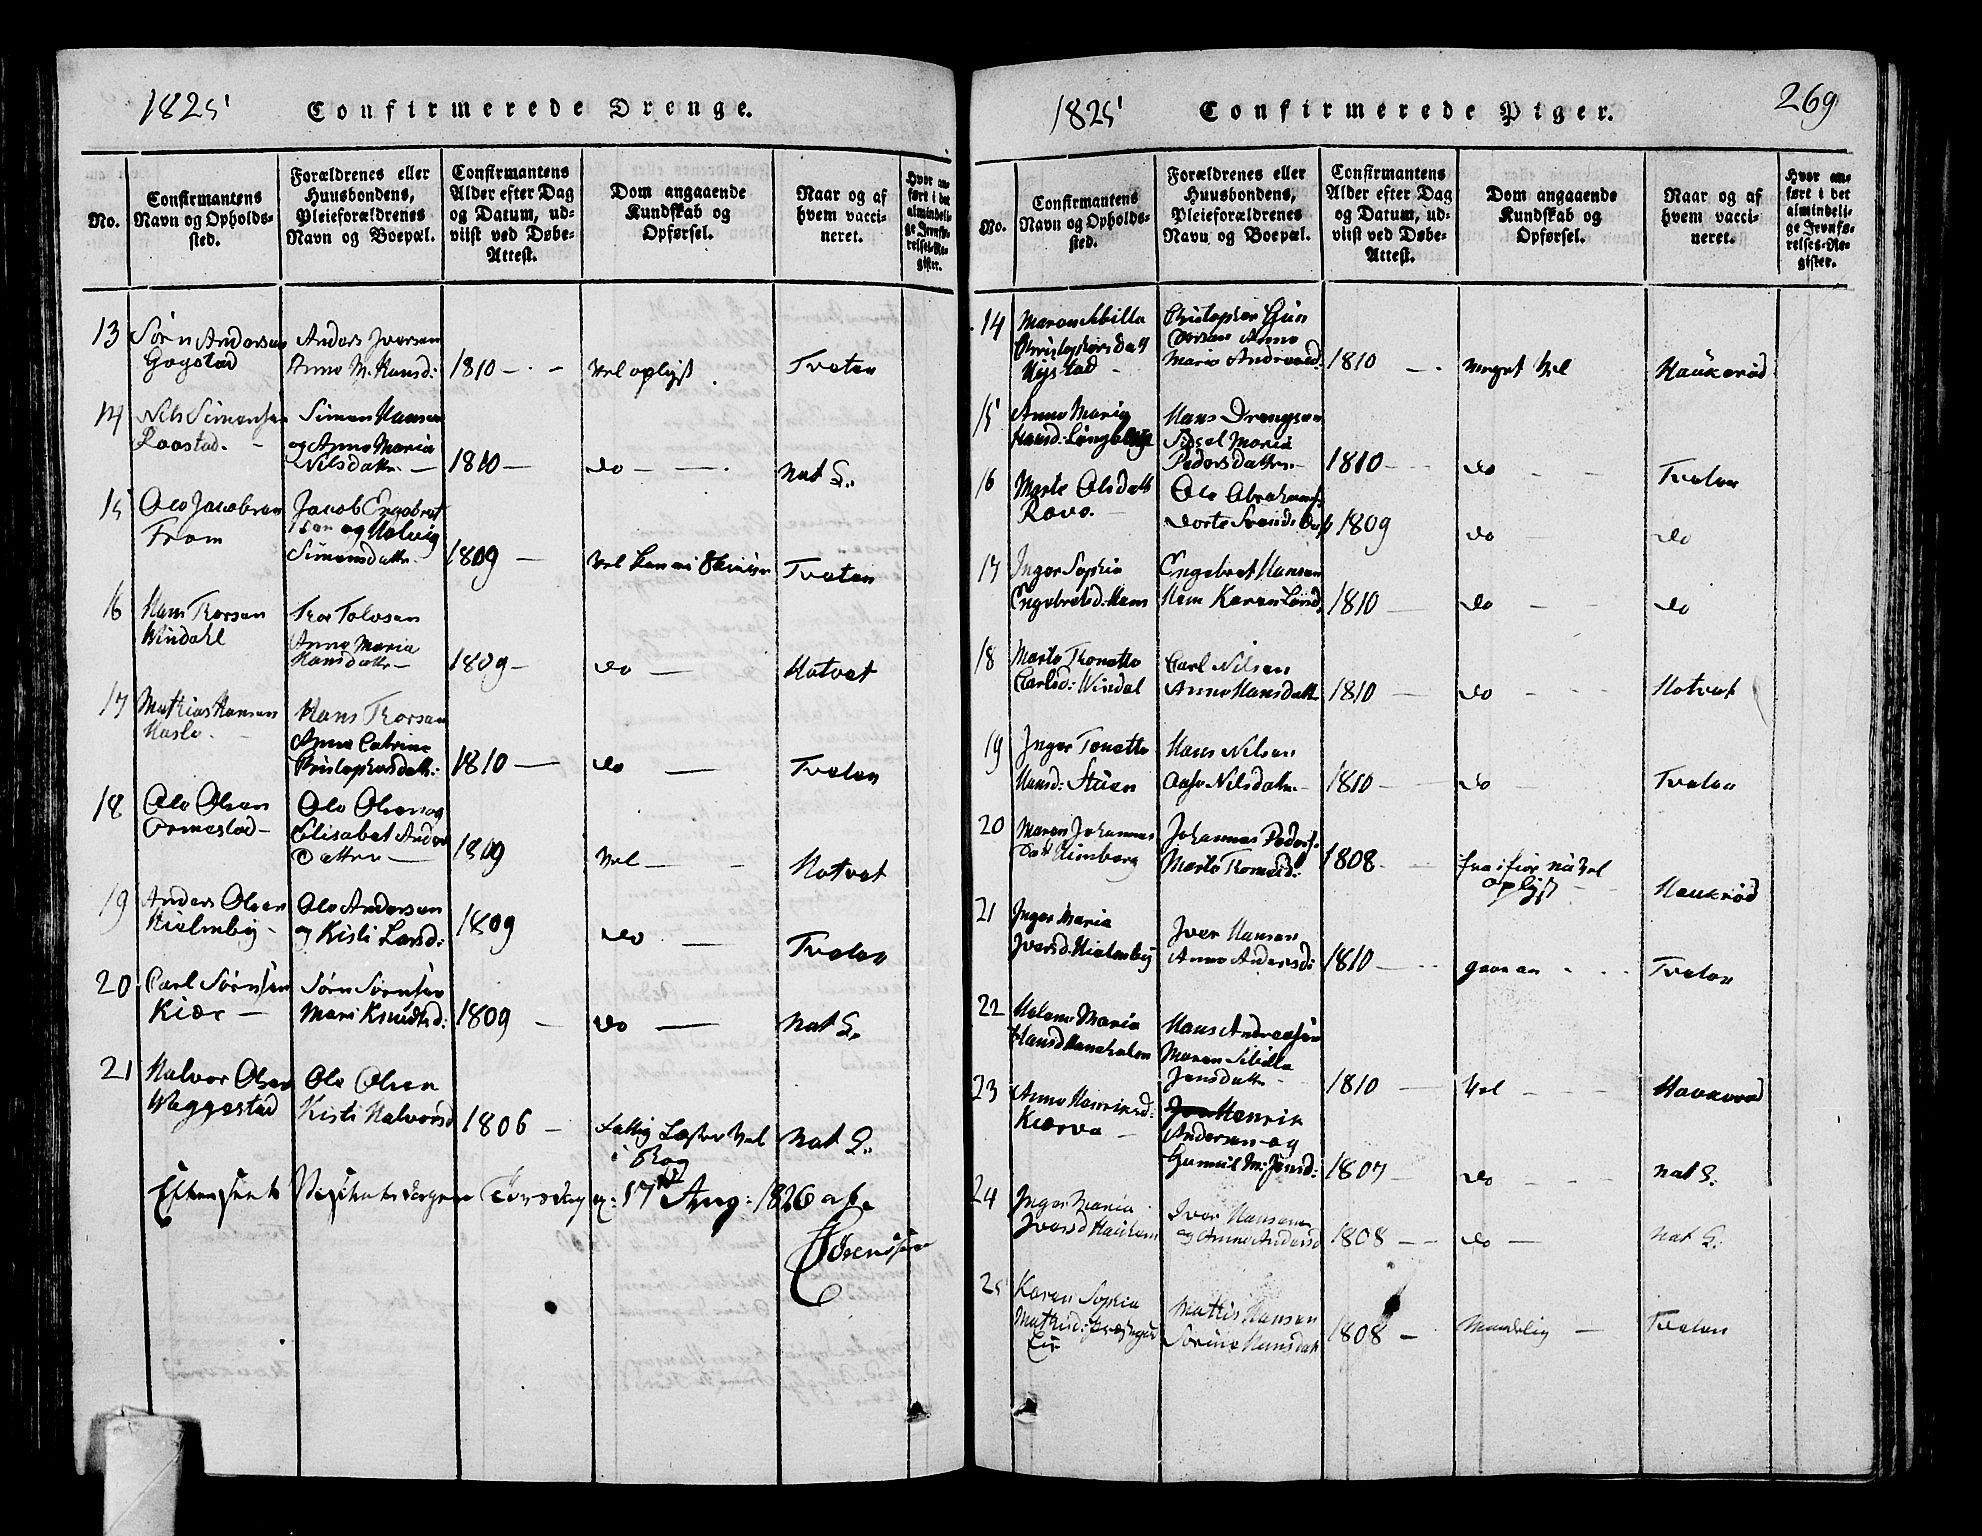 1825
Confirmerede Drenge.
No.
Confirmantens
Navn og Opholds-
sted.
Forældrenes eller
Huusbondens,
Pleieforældrenes
Navn og Boepæl.
Confirmantens
Alder efter Dag
og Datum, ud-
viist ved Døbe-
Attest.
Dom angaaende
Kundskab og
Opførsel.
Naar og af
hvem vacci-
neret.
Hvor an-
ført i det
almindeli-
ge Jevnfø-
relses-Re-
gister.
13 Sørn Andersen
Gogstad
Anders Iversen
Anne M. Hansd:
1810 - - -
Vel oplyst
Tveten
14 Nils Simensen
Raastad. -
Simen Hansen
og Anne Maria
Nilsdattr. -
1810 -
do - -
nat S.
15 Ole Jacobsen
Fram
Jacob Engebret
sen og Helvig
Simensdattr.
1809 -
Tveten
16 Hans Thorsen
Windahl
Thor Tolvsen
Anne Maria
Hansdattr -
1809 -
do -
Hotvet
17 Mathias Hansen
Hasle. -
Hans Thorsen
Anne Catrine
Christophersdattr:
1810 -
do -
Tveten
18 Ole Olsen
Ormestad -
Ole Olsen og
Elisabet Anders
Datter -
1809
Vel - -
Hotvet
19 Anders Olsen
Hielmby -
Ole Andersen
og Kisti Larsd:
1809
do -
Tveten
20 Carl Sørnsen
Kiær -
Sørn Sørnsen
Mari Knudsd:
1809 -
do -
nat S.
21 Halvor Olsen
Weggestad
Ole Olsen
Kisti Halvorsd
1806 -
Fattig Læser Vel
i Bog
nat S.
17de Aug: 1826 af
Sørensen
1825
Confirmerede Piger.
269
No.
Confirmantens
Navn og Opholds-
sted.
Forældrenes eller
Huusbondens,
Pleieforældrenes
Navn og Boepæl.
Confirmantens
Alder efter Dag
og Datum, ud-
viist ved Døbe-
Attest.
Dom angaaende
Kundskab og
Opførsel.
Naar og af
hvem vacci-
neret.
Hvor an-
ført i det
almindeli-
ge Jevnfø-
relses-Re-
gister.
14 Maren Sibilla
Christophersdatt
Christopher
Anne
Maria Andreasd.
1810 - -
meget Vel
Haukerød
15 Anne Maria
Hansd:
Hans Drengsen
Sissel Maria
Pedersdattr. -
1810 - -
do - -
Tveten
16 Marte Olsdatt
Rove. -
Ole Abrahams
Dorte
1809
do -
do
17 Inger Sophia
Engebretsd: Hem
Engebret Hansen
Hem Karen Larsd
1810 -
do - -
do
18 Marte Thonette
Carlsd: Windal
Carl Nilsen
Anne Hansdattr
1810 -
do - -
Hotvet
19 Inger Tonette
Hansd: Stuen
Hans Nilsen
Aase Nilsdattr. -
1810 -
do -
Tveten
20 Maren Johannes
Dat Kimberg
Johannes Peders.
Marte Thomesd:
1808 - -
oplyst -
Haukerød
21 Inger Maria
Iversd: Hielmby
Iver Hansen
Anne Andersd:
1810 - -
gaar an - -
Tveten
22 Helene Maria
Hansd Haneholen
Hans Andreasen
Maren Sibilla
Jensdattr -
1810 -
Vel - -
Haukerød
23 Anne Henriksd:
Kiærve -
Henrik
Andersen og
Gunnil M: Jensd:
1807 -
do - -
nat S.
24 Inger Maria
Iversd Haukem
Iver Hansen
og Anne Andersd
1808 - -
do -
nat S.
25 Karen Sophia
Mathisd:
Eie
Mathis Hansen
Sørine Hansdatt
1808 -
Maadelig -
Tveten